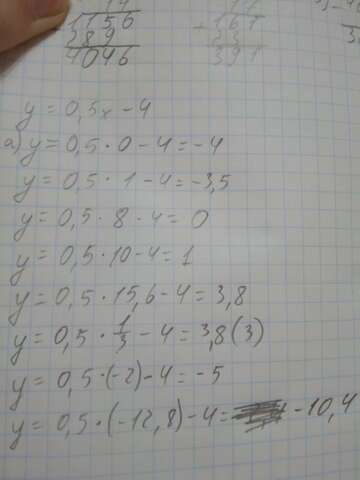 1156
289
4046
161
23
391
y = 0,5x - 4
а) y = 0,5 · 0 - 4 = -4
y = 0,5 · 1 - 4 = -3,5
y = 0,5 · 8 - 4 = 0
y = 0,5 · 10 - 4 = 1
y = 0,5 · 15,6 - 4 = 3,8
y = 0,5 · 1/3 - 4 = 3,8(3)
y = 0,5 · (-2) - 4 = -5
y = 0,5 · (-12,8) - 4 = -10,4